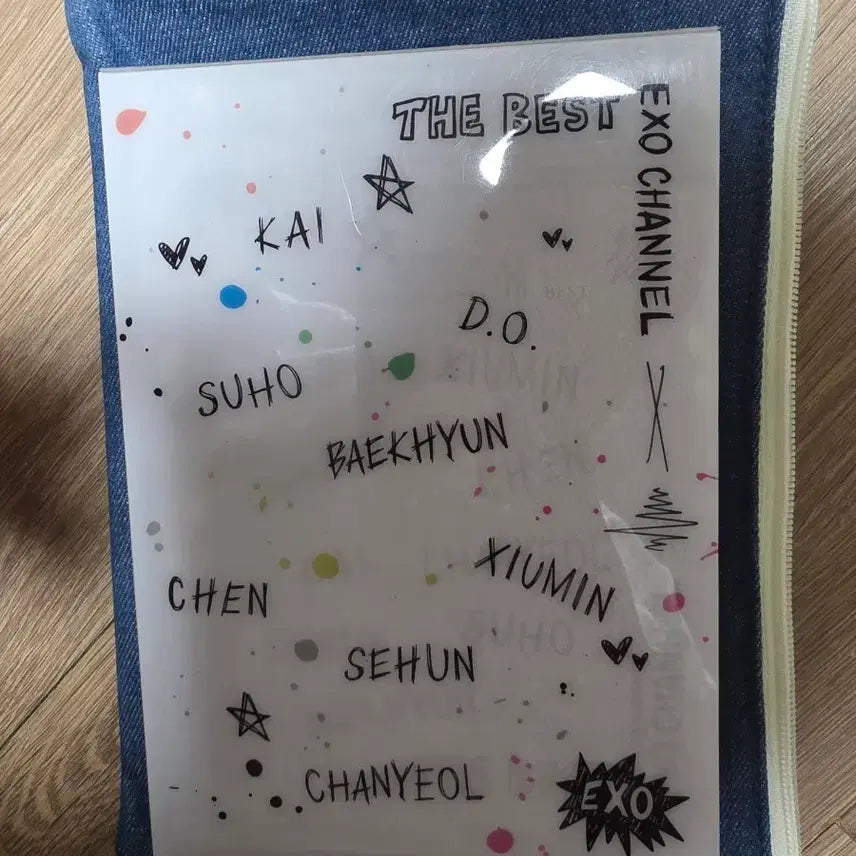 THE BEST
EXO CHANNEL
KAI
D.O.
SUHO
BAEKHYUN
XIUMIN
CHEN
SEHUN
CHANYEOL
EXO